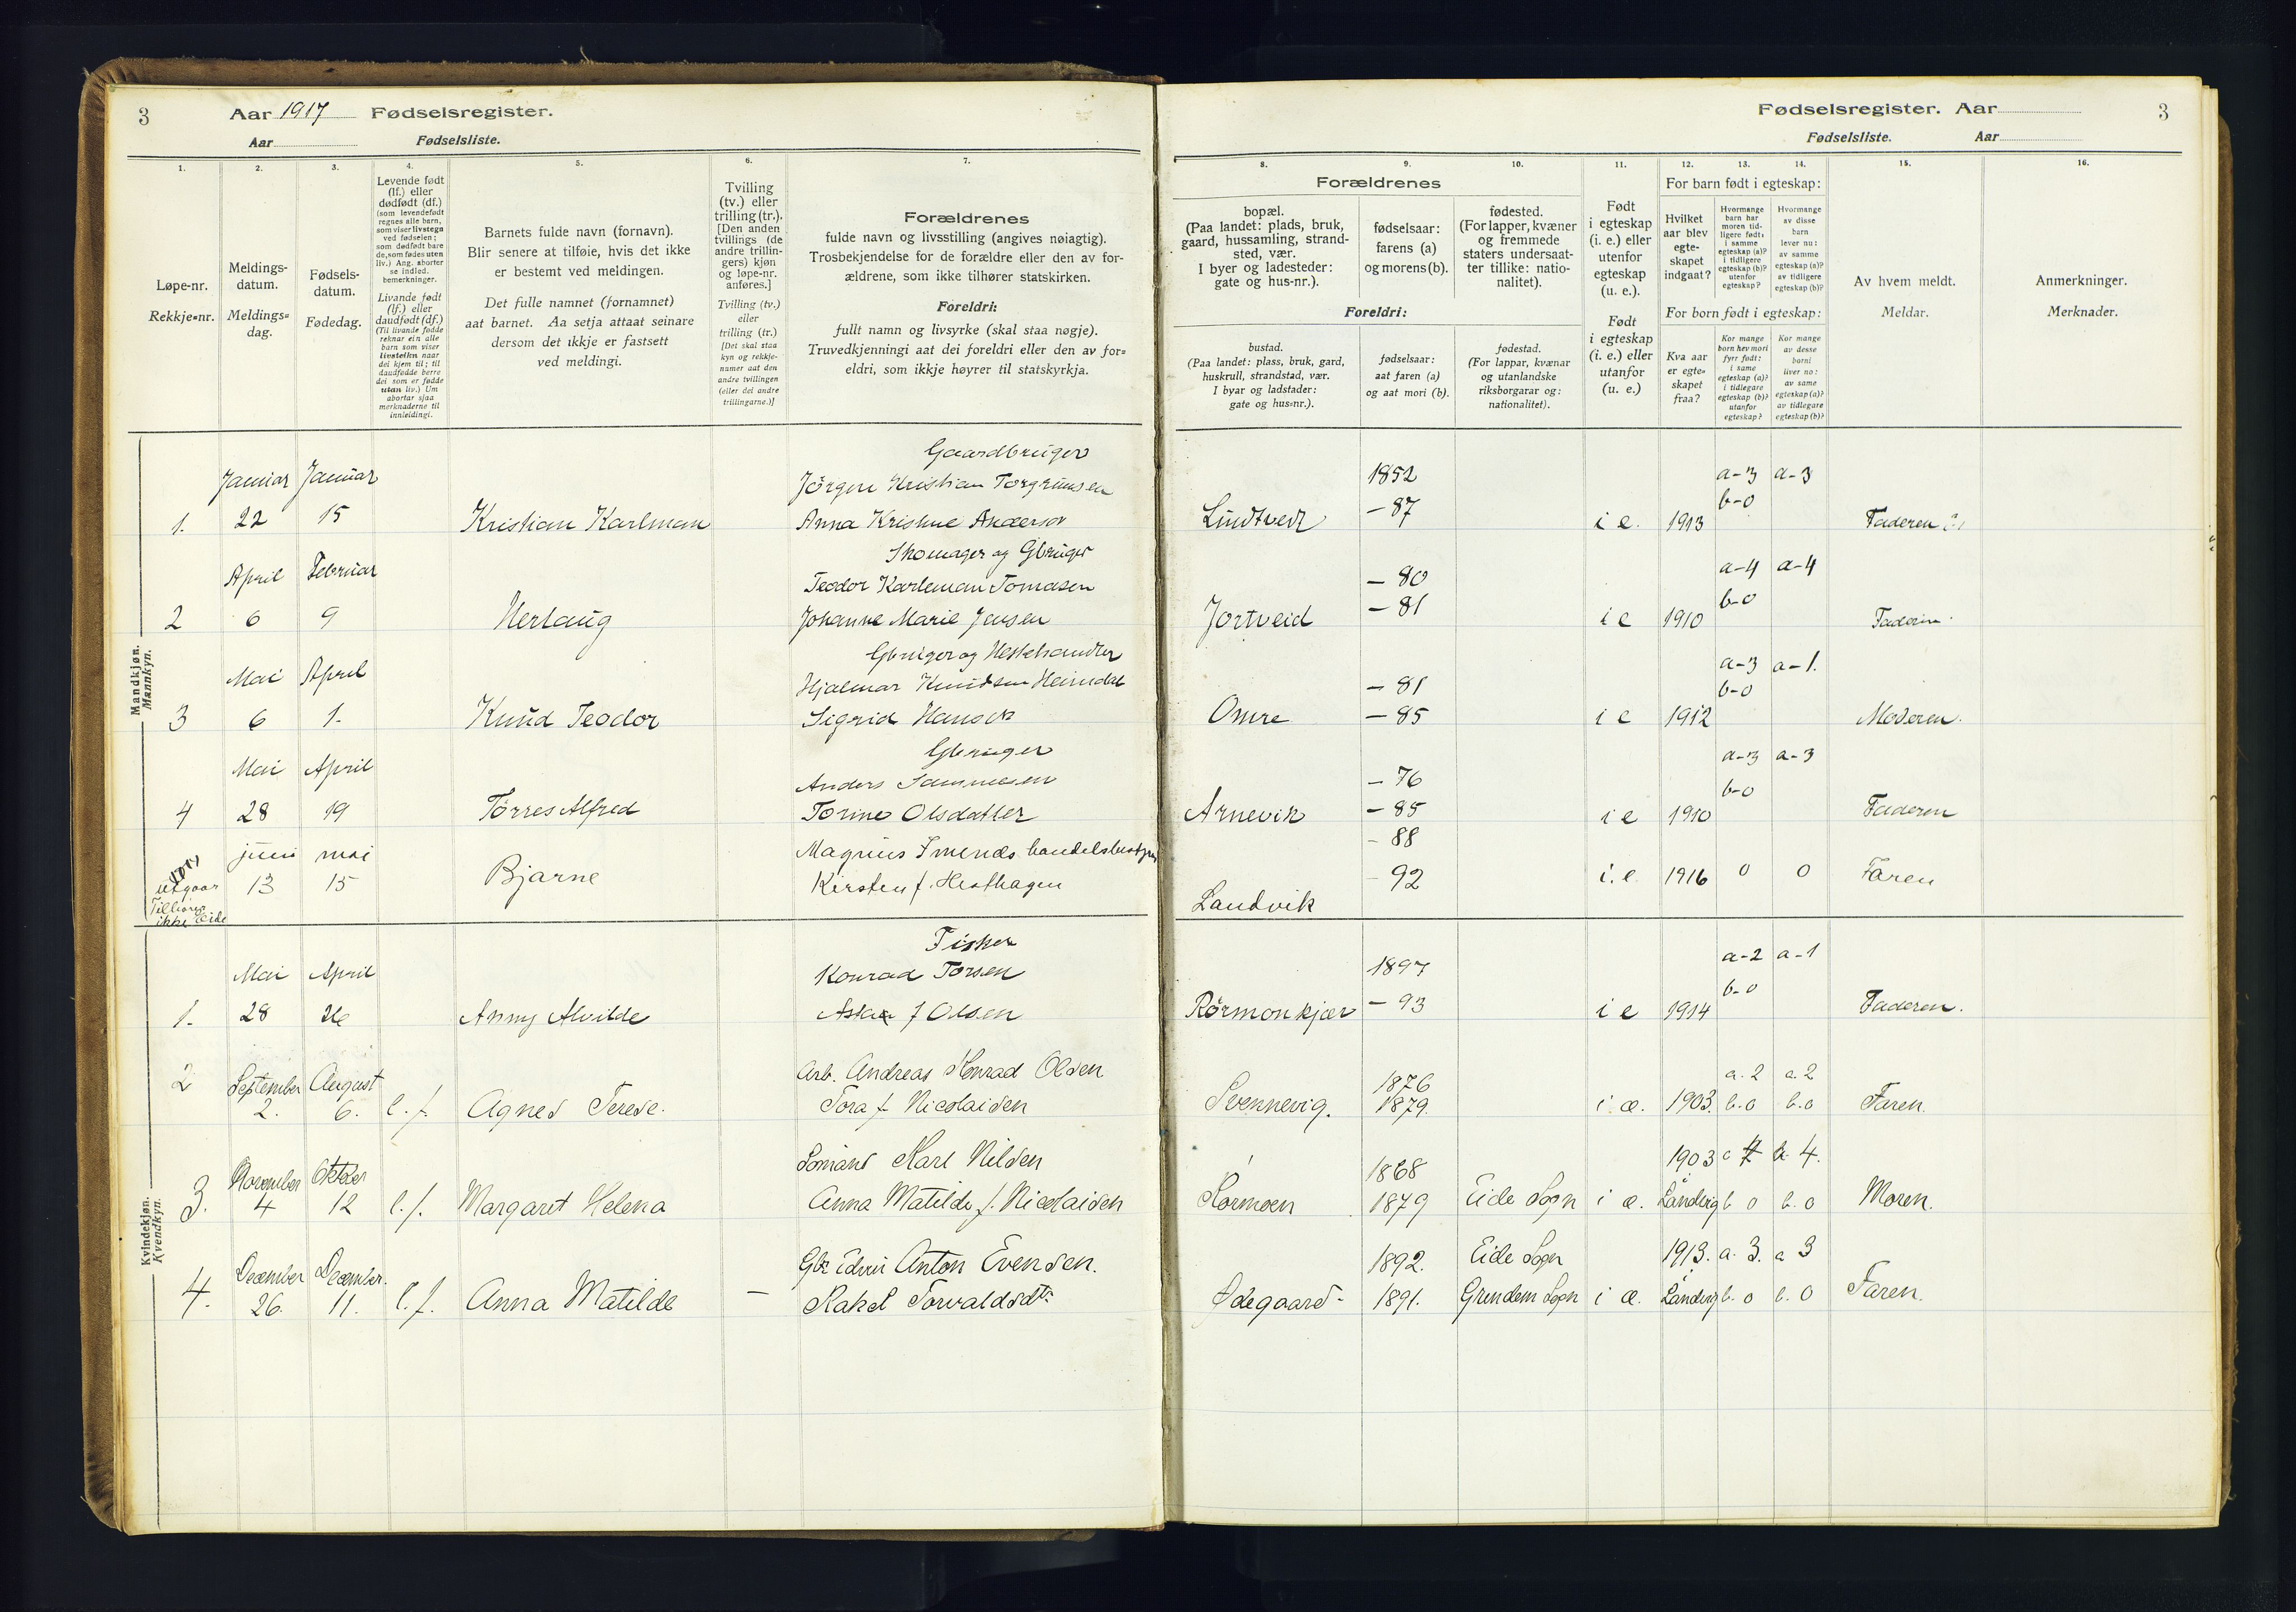 3 Aar 1917 Fødselsregister.
Aar Fødselsliste.
Fødselsregister. Aar 3
Fødselsliste. Aar
1. 2. 3. 4. 5. 6. 7.
Løpe-nr.
Rekkje=nr.
Meldings-
datum.
Meldings=
dag.
Fødsels-
datum.
Fødedag.
Levende født
(lf.) eller
dødfødt (df.)
(som levendefødt
regnes alle barn,
som viser livstegn
ved fødselen;
som dødfødt bare
de, som fødes uten
liv.) Ang. aborter
se indled.
bemerkninger.
Livande født
(lf.) eller
daudfødt (df.)
(Til livande fødde
reknar ein alle
barn som viser
livsteikn naar
dei kjem til; til
daudfødde berre
dei som er fødde
utan liv.) Um
abortar sjaa
merknaderne til
innleidingi.
Barnets fulde navn (fornavn).
Blir senere at tilføie, hvis det ikke
er bestemt ved meldingen.
Det fulle namnet (fornamnet)
aat barnet. Aa setja attaat seinare
dersom det ikkje er fastsett
ved meldingi.
Tvilling
(tv.) eller
trilling (tr.).
[Den anden
tvillings (de
andre trillin-
gers) kjøn
og løpe-nr.
anføres.]
Tvilling (tv.)
eller
trilling (tr.)
[Det skal staa
kyn og rekkje-
numer aat den
andre tvillingen
(eller dei andre
trillingarne.)]
Forældrenes
fulde navn og livsstilling (angives nøiagtig).
Trosbekjendelse for de forældre eller den av for-
ældrene, som ikke tilhører statskirken.
Foreldri:
fullt namn og livsyrke (skal staa nøgje).
Truvedkjenningi aat dei foreldri eller den av for=
eldri, som ikkje høyrer til statskyrkja.
8. 9. 10. 11. 12. 13. 14. 15. 16.
Forældrenes
bopæl.
(Paa landet: plads, bruk,
gaard, hussamling, strand-
sted, vær.
I byer og ladesteder:
gate og hus-nr.).
fødselsaar:
farens (a)
og morens (b).
fødested.
(For lapper, kvæner
og fremmede
staters undersaat-
ter tillike: natio-
nalitet).
Foreldri:
bustad.
(Paa landet: plass, bruk, gard,
huskrull, strandstad, vær.
I byar og ladstader:
gate og hus=nr.).
fødselsaar:
aat faren (a)
og aat mori (b).
fødestad.
(For lappar, kvænar
og utanlandske
riksborgarar og:
nationalitet).
Født
i egteskap
(i. e.) eller
utenfor
egteskap
(u. e.).
Født
i egteskap
(i. e.) eller
utanfor
(u. e.)
For barn født i egteskap:
Hvilket
aar blev
egte-
skapet
indgaat?
Hvormange
barn har
moren tid-
ligere født:
i samme
egteskap (a)?
i tidligere
egteskap (b)?
utenfor
egteskap?
Hvormange
av disse
barn
lever nu:
av samme
egteskap (a)?
av tidligere
egteskap (b)?
For born født i egteskap:
Kva aar
er egte=
skapet
fraa?
Kor mange
born hev mori
fyrr født:
i same
egteskap (a)?
i tidlegare
egteskap (b)?
utanfor
egteskap?
Kor mange
av desse
borni
liver no:
av same
egteskap (a)?
av tidlegare
egteskap (b)?
Av hvem meldt.
Meldar.
Anmerkninger.
Merknader.
Mandkjøn.
Mannkyn.
Gaardbruger
Januar Januar Jörgen Kristian Torgrimsen 1852 a-3 a-3
1. 22 15 Kristian Karlman Anna Kristine Andersen Lindtveit -87 b-0 i e. 1913 Faderen
Skomager og Gbruger
April Februar Teodor Karleman Tomasen -80 a-4 a-4
2 6 9 Herlaug Johanne Marie Jensen Jortveid -81 b-0 i e 1910 Faderen.
Gbruger og Hestehandler
Mai April Hjalmar Knudsen Heimdal -81 a-3 a-1.
3 6 1. Knud Teodor Sigrid Hansen Omre -85 b-0 i e 1912 Moderen.
Gbruger
Mai April Anders -76 a-3 a-3
4 28 19 Törres Alfred Torine Olsdatter Arnevik -85 b-0 i e 1910 Faderen
juni mai Magnus handelsbestyrer -88
utgaar 13 15 Bjarne Kirsten f. Hesthagen Landvik 92 i. e 1916 0 0 Faren
Tilhører
ikke Eide
Kvindekjøn.
Kvendkyn.
Fisker
Mai April Konrad Torsen 1897 a-2 a-1
1. 28 26 Anny Alvilde f Olsen Rørmonkjær -93 b-0 i e 1914 Faderen.
2 September August Arb. Andreas Konrad Olsen 1876 a. 2 a. 2
2. 6. l. f. Agnes Terese. Tora f. Nicolaisen Svennevig. 1879. i æ. 1903. b. 0 b. 0 Faren.
November Oktober Sömand Karl Nilsen 1868 1903 a 4.
3. 4 12 l. f. Margaret Helena Anna Matilde f. Nicolaisen Hørmoen 1879 Eide Sogn i æ. Landvig b 0 b. 0 Moren.
December December. Gbr. Edvin Anton Evensen. 1892. Eide Sogn 1913. a. 3. a 3
4. 26. 11. l. f. Anna Matilde - Rakel Torvaldsdtr. Ødegaard- 1891. Grindem Sogn i æ. Landvig b. 0 b. 0 Faren.